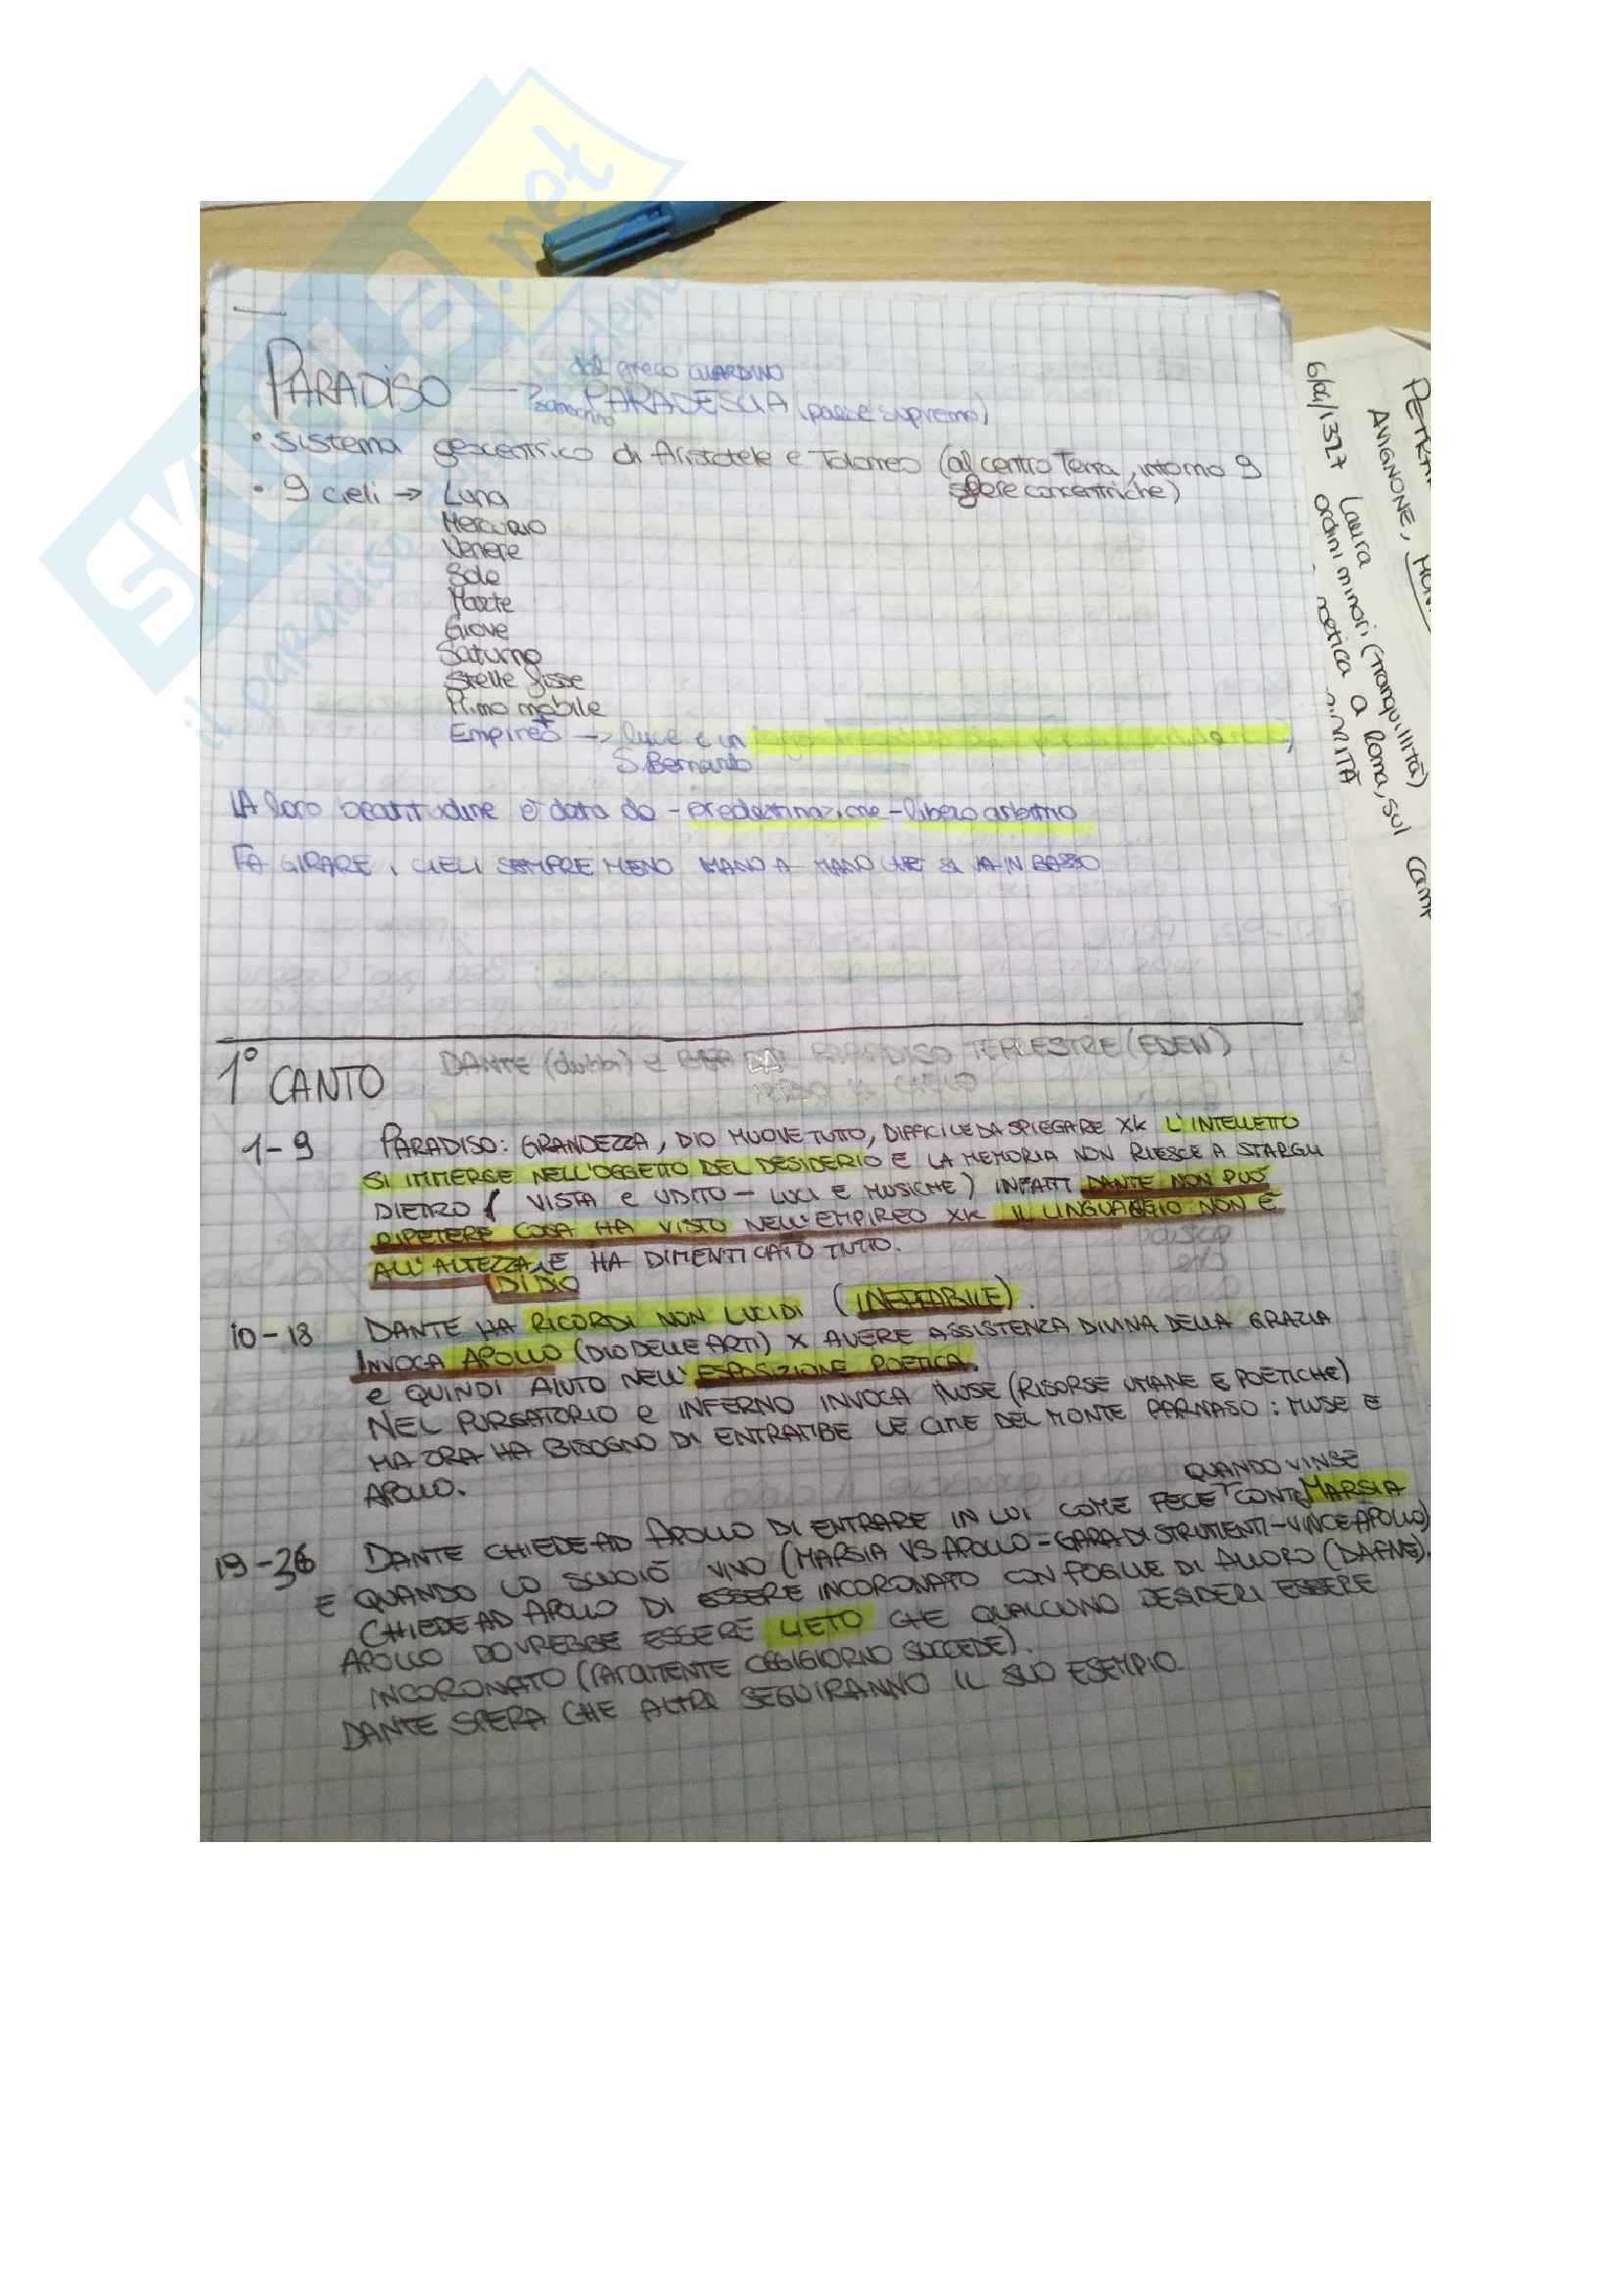 SKUOLA.net
il paradiso dello studente
PARADISO →
dal greco GIARDINO
PARADESCIA (paese supremo)
• Sistema geocentrico di Aristotele e Tolomeo (al centro Terra, intorno 9
sfere concentriche)
• 9 cieli → Luna
Mercurio
Venere
Sole
Marte
Giove
Saturno
Stelle fisse
Primo mobile
+
Empireo → luce e un
S. Bernardo
LA loro beatitudine è data da - predestinazione - libero arbitrio
FA GIRARE i CIELI SEMPRE MENO MANO A MANO CHE SI VA IN BASSO
1° CANTO
DANTE (dubbi) e PARADISO TERRESTRE (EDEN)
CIELO
1-9 PARADISO: GRANDEZZA, DIO MUOVE TUTTO, DIFFICILE DA SPIEGARE XK L'INTELLETTO
SI IMMERGE NELL'OGGETTO DEL DESIDERIO E LA MEMORIA NON RIESCE A STARGLI
DIETRO ( VISTA e UDITO - LUCI E MUSICHE) INFATTI DANTE NON PUÒ
RIPETERE COSA HA VISTO NELL'EMPIREO XK IL LINGUAGGIO NON È
ALL'ALTEZZA E HA DIMENTICATO TUTTO.
DI DIO
10-18 DANTE HA RICORDI NON LUCIDI (INEFFABILE).
INVOCA APOLLO (DIO DELLE ARTI) X AVERE ASSISTENZA DIVINA DELLA GRAZIA
e QUINDI AIUTO NELL'ESPOSIZIONE POETICA.
NEL PURGATORIO e INFERNO INVOCA MUSE (RISORSE UMANE E POETICHE)
MA ORA HA BISOGNO DI ENTRAMBE LE CIME DEL MONTE PARNASO: MUSE E
APOLLO.
QUANDO VINSE
19-36 DANTE CHIEDE AD APOLLO DI ENTRARE IN LUI COME FECE CONTRO MARSIA
E QUANDO LO SCUOIÒ VIVO (MARSIA VS APOLLO = GARA DI STRUMENTI - VINCE APOLLO)
CHIEDE AD APOLLO DI ESSERE INCORONATO CON FOGLIE DI ALLORO (DAFNE).
APOLLO DOVREBBE ESSERE LIETO CHE QUALCUNO DESIDERI ESSERE
INCORONATO (RARAMENTE OGGIGIORNO SUCCEDE).
DANTE SPERA CHE ALTRI SEGUIRANNO IL SUO ESEMPIO.
AVIGNONE,
6/04/1327 Laura
ordini minori (tranquillità)
poetica a Roma, sul